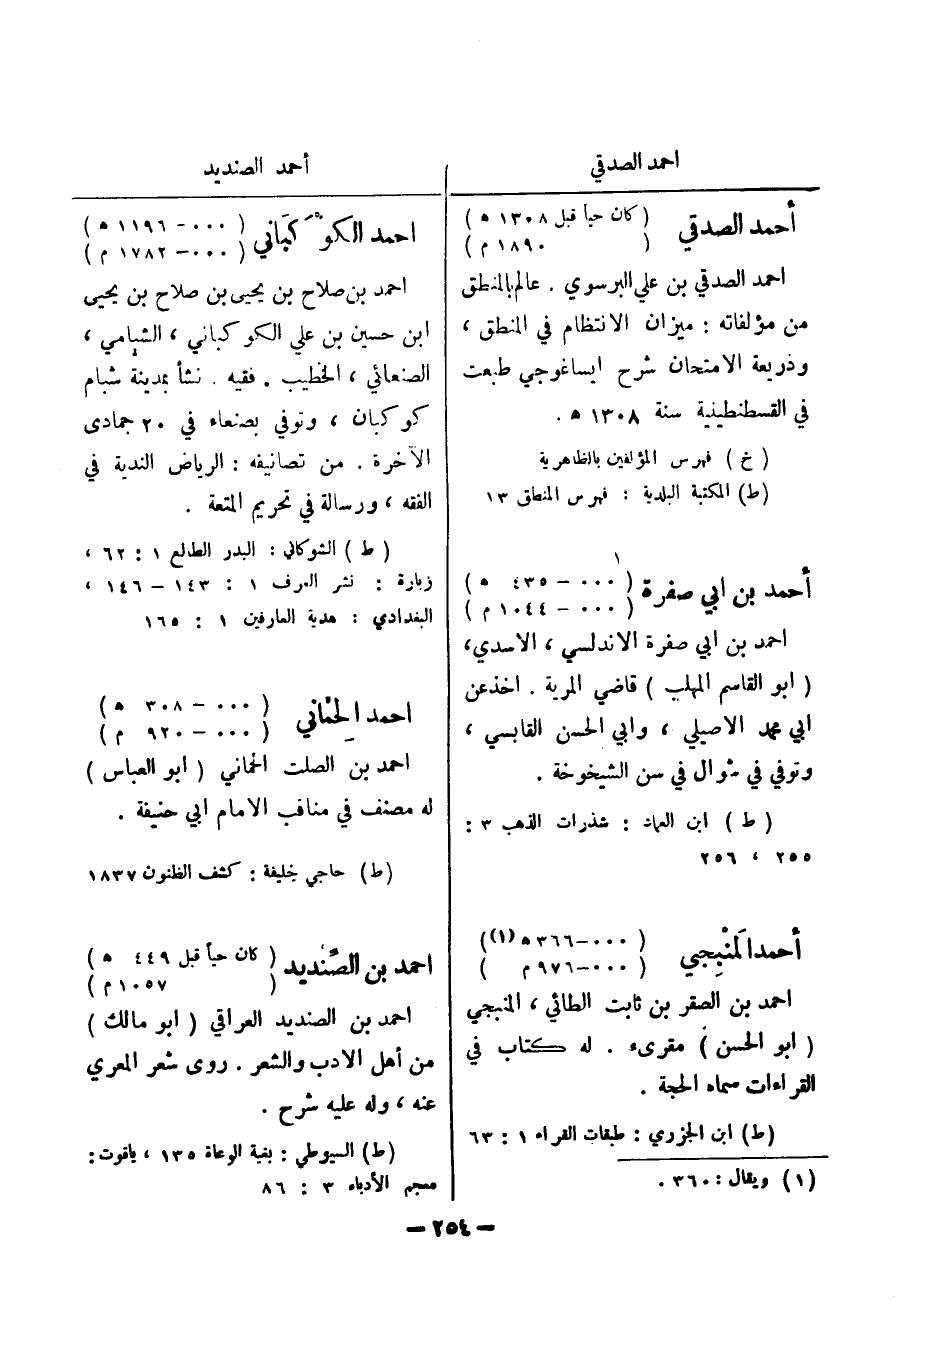 احمد الصدقي
أحمد الصنديد
أحمد الصدقي ( كان حياً قبل ١٣٠٨ ه )
( ١٨٩٠ م )
احمد الصدقي بن علي البرسوي . عالم بالمنطق
من مؤلفاته : ميزان الانتظام في المنطق ،
وذريعة الامتحان شرح ايساغوجي طبعت
في القسطنطينية سنة ١٣٠٨ ه .
( خ ) فهرس المؤلفين بالظاهرية
( ط ) المكتبة البلدية : فهرس المنطق ١٣
١
أحمد بن ابي صفرة ( ٠٠٠ – ٤٣٥ ه )
( ٠٠٠ – ١٠٤٤ م )
احمد بن ابي صفرة الاندلسي ، الاسدي،
( ابو القاسم المهلب ) قاضي المرية . اخذ عن
ابي محمد الاصيلي ، وابي الحسن القابسي ،
وتوفي في شوال في سن الشيخوخة .
( ط ) ابن العماد : شذرات الذهب ٣ :
٢٥٥ ، ٢٥٦
أحمد المَنْبِجي ( ٠٠٠ – ٣٦٦ ه (١) )
( ٠٠٠ – ٩٧٦ م )
احمد بن الصقر بن ثابت الطائي ، المنبجي
( ابو الحسن ) مقرىء . له كتاب في
القراءات سماه الحجة .
( ط ) ابن الجزري : طبقات القراء ١ : ٦٣
( ١ ) ويقال : ٣٦٠ .
احمد الكَوْكَبَاني ( ٠٠٠ – ١١٩٦ ه )
( ٠٠٠ – ١٧٨٢ م )
احمد بن صلاح بن يحيى بن صلاح بن يحيى
ابن حسين بن علي الكوكباني ، الشبامي ،
الصنعائي ، الخطيب . فقيه . نشأ بمدينة شبام
كوكبان ، وتوفي بصنعاء في ٢٠ جمادى
الآخرة . من تصانيفه : الرياض الندية في
الفقه ، ورسالة في تحريم المتعة .
( ط ) الشوكاني : البدر الطالع ١ : ٦٢ ،
زبارة : نشر العرف ١ : ١٤٣ – ١٤٦ ،
البغدادي : هدية العارفين ١ : ١٦٥
احمد الحِمَّاني ( ٠٠٠ – ٣٠٨ ه )
( ٠٠٠ – ٩٢٠ م )
احمد بن الصلت الحماني ( ابو العباس )
له مصنف في مناقب الامام ابي حنيفة .
( ط ) حاجي خليفة : كشف الظنون ١٨٣٧
احمد بن الصَّنديد ( كان حياً قبل ٤٤٩ ه )
( ١٠٥٧ م )
احمد بن الصنديد العراقي ( ابو مالك )
من أهل الادب والشعر . روى شعر المعري
عنه ، وله عليه شرح .
( ط ) السيوطي : بغية الوعاة ١٣٥ ، ياقوت :
معجم الأدباء ٣ : ٨٦
– ٢٥٤ –